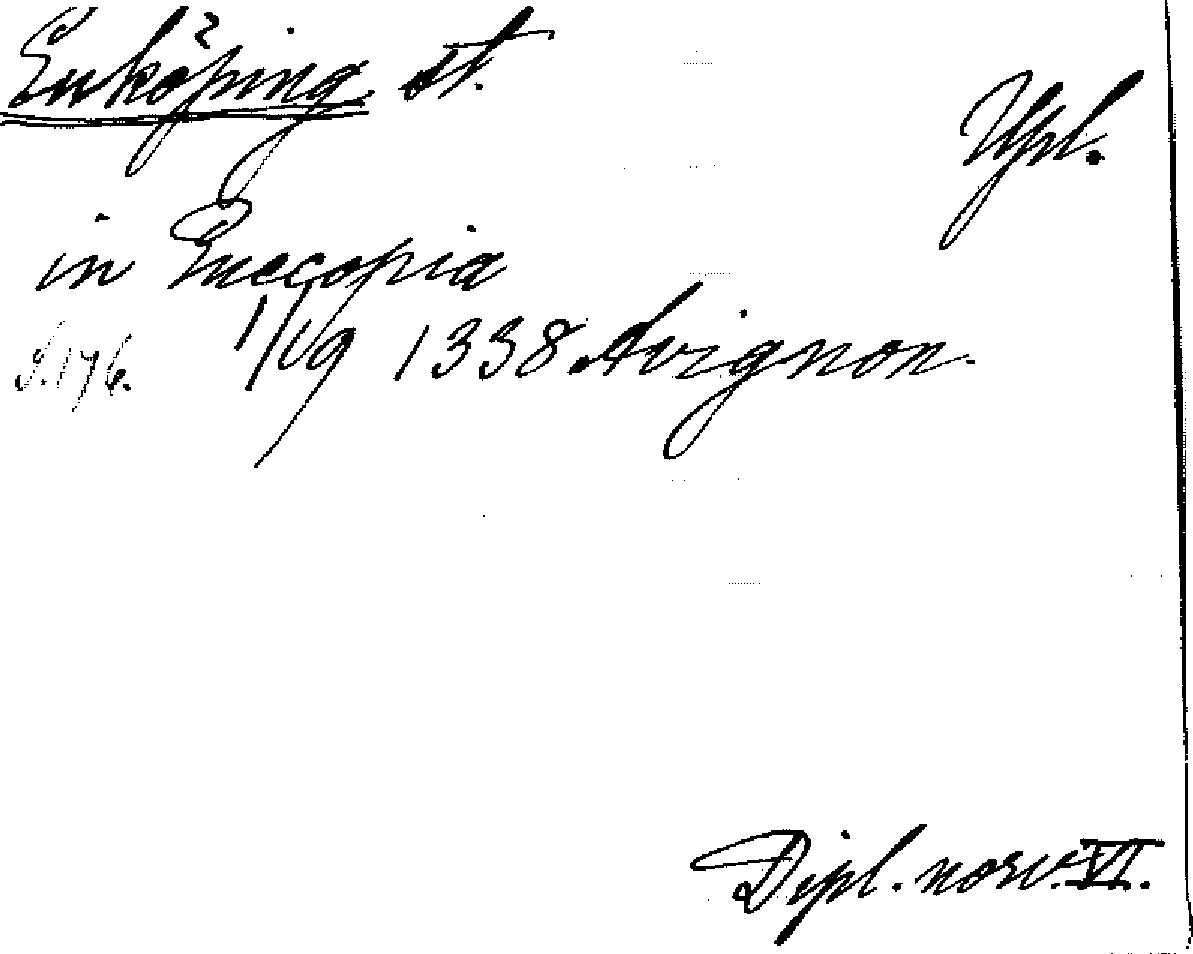 Enköping st.
Upl.
in Enecopia
S. 176. 1/10 1338 Avignon.
Dipl. norv. VI.